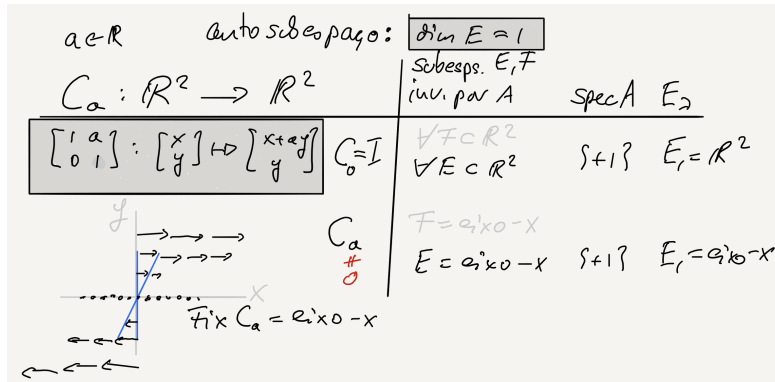 a∈ℝ autosubespaço: dim E = 1
subesps. E, F
C_a : ℝ² → ℝ² inv. por A spec A E_λ
[1 a; 0 1] : [x; y] ↦ [x+ay; y] C_0 = I ∀F⊂ℝ²
∀E⊂ℝ² {+1} E_1 = ℝ²
y C_a F = eixo-x
≠ E = eixo-x {+1} E_1 = eixo-x
0
x
Fix C_a = eixo-x